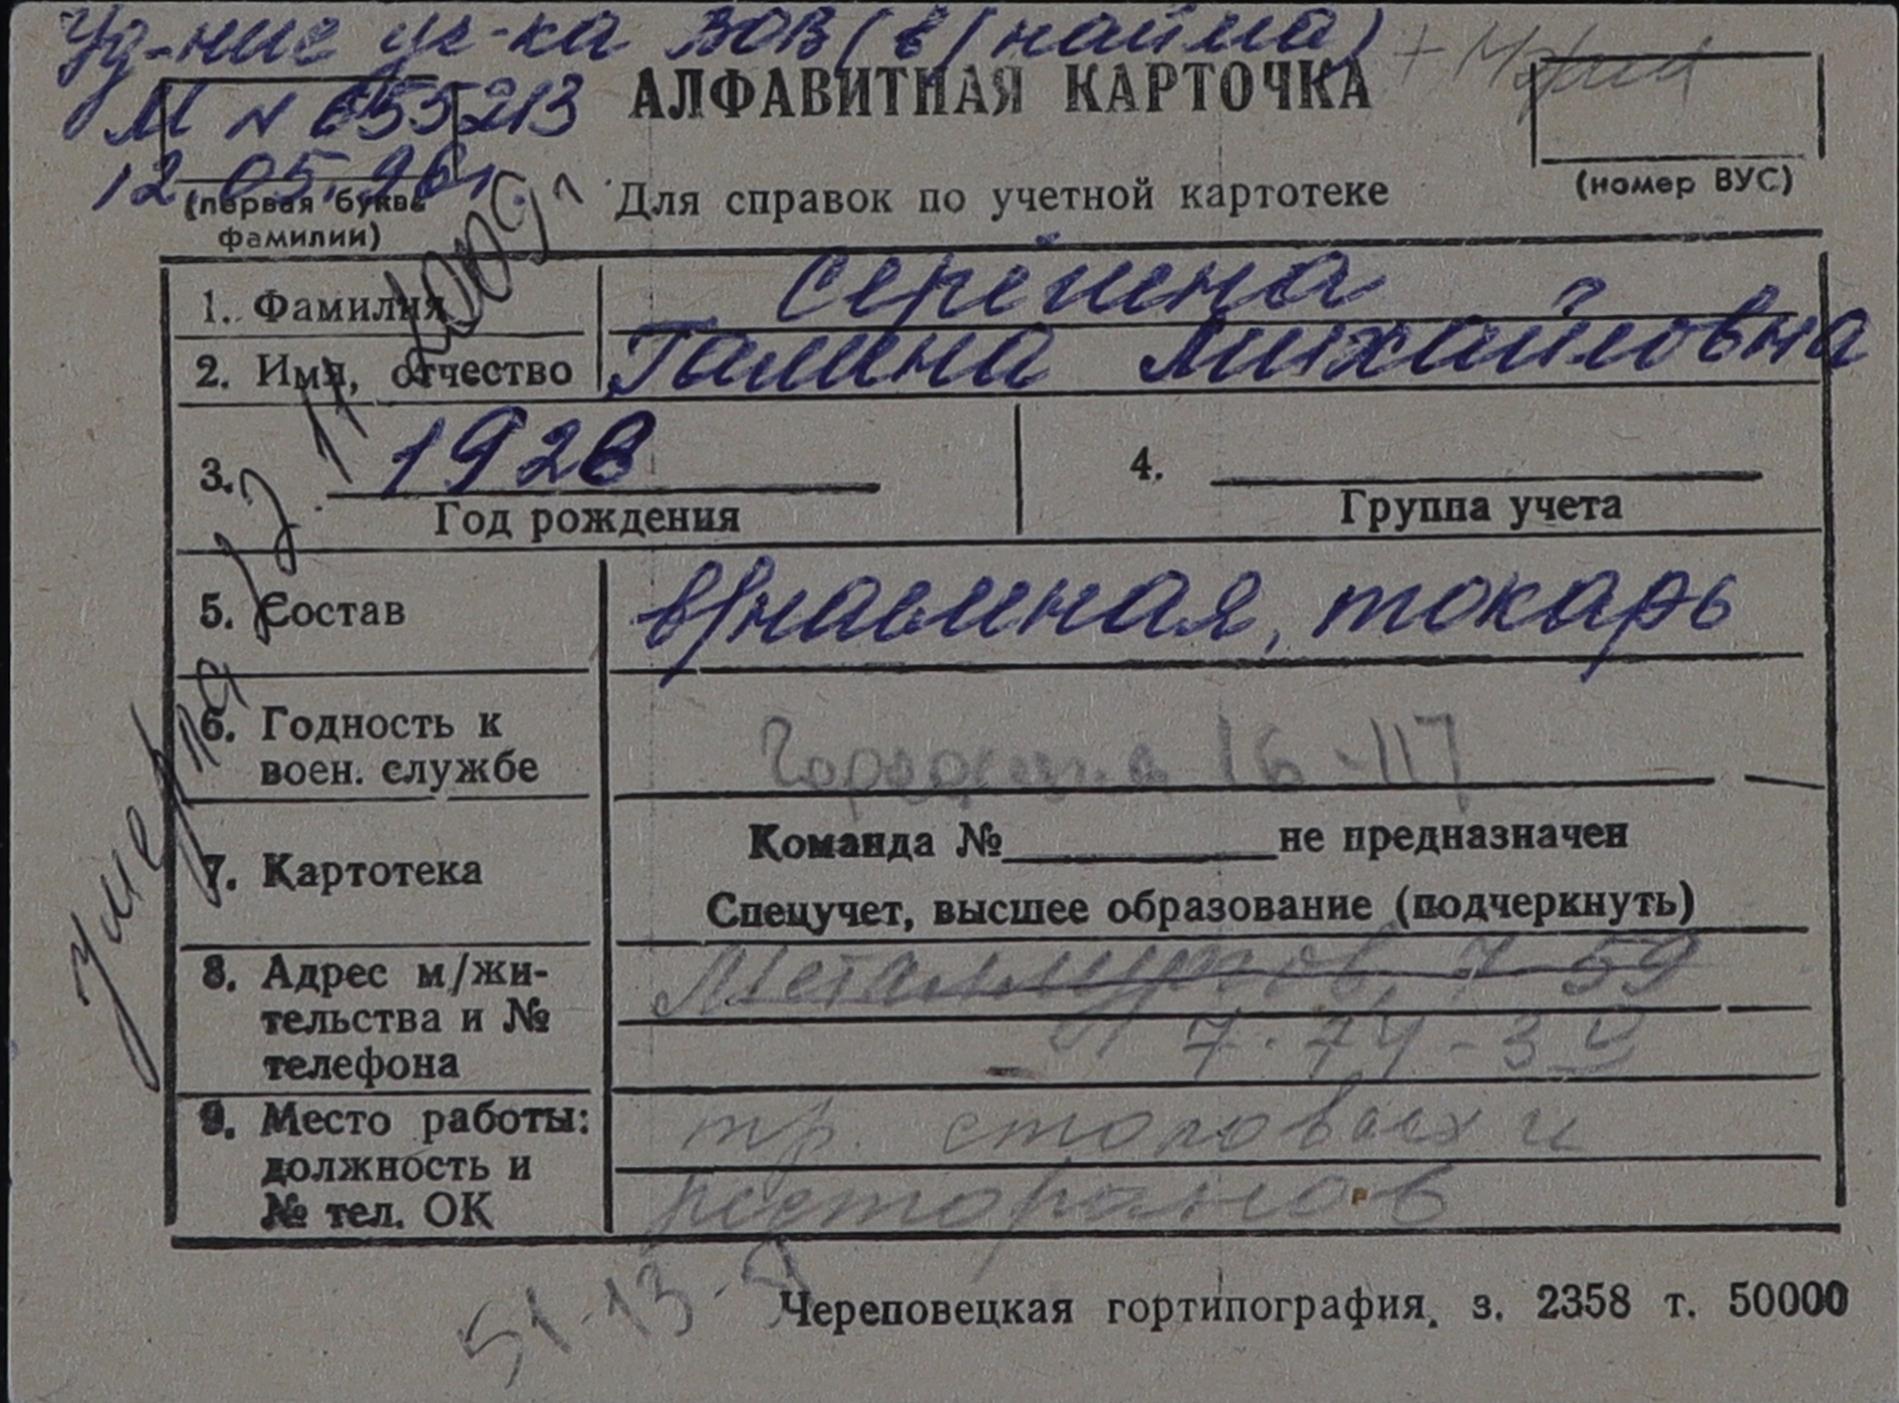 Уд-ние уч-ка ВОВ (в/найма)
М № 655213
12.05.96г.
АЛФАВИТНАЯ КАРТОЧКА
(первая буква
фамилии)
Для справок по учетной картотеке
(номер ВУС)
1. Фамилия
Серегина
2. Имя, отчество
Галина Михайловна
3. 1928
Год рождения
4.
Группа учета
5. Состав
в/наемная, токарь
6. Годность к
воен. службе
16-117
7. Картотека
Команда № не предназначен
Спецучет, высшее образование (подчеркнуть)
8. Адрес м/жи-
тельства и №
телефона
Металлургов, 7-59
7-74-34
9. Место работы:
должность и
№ тел. ОК
тр. столовых и
ресторанов
51-13-9
Умерла 22.11.2009г.
Череповецкая гортипография, з. 2358 т. 50000